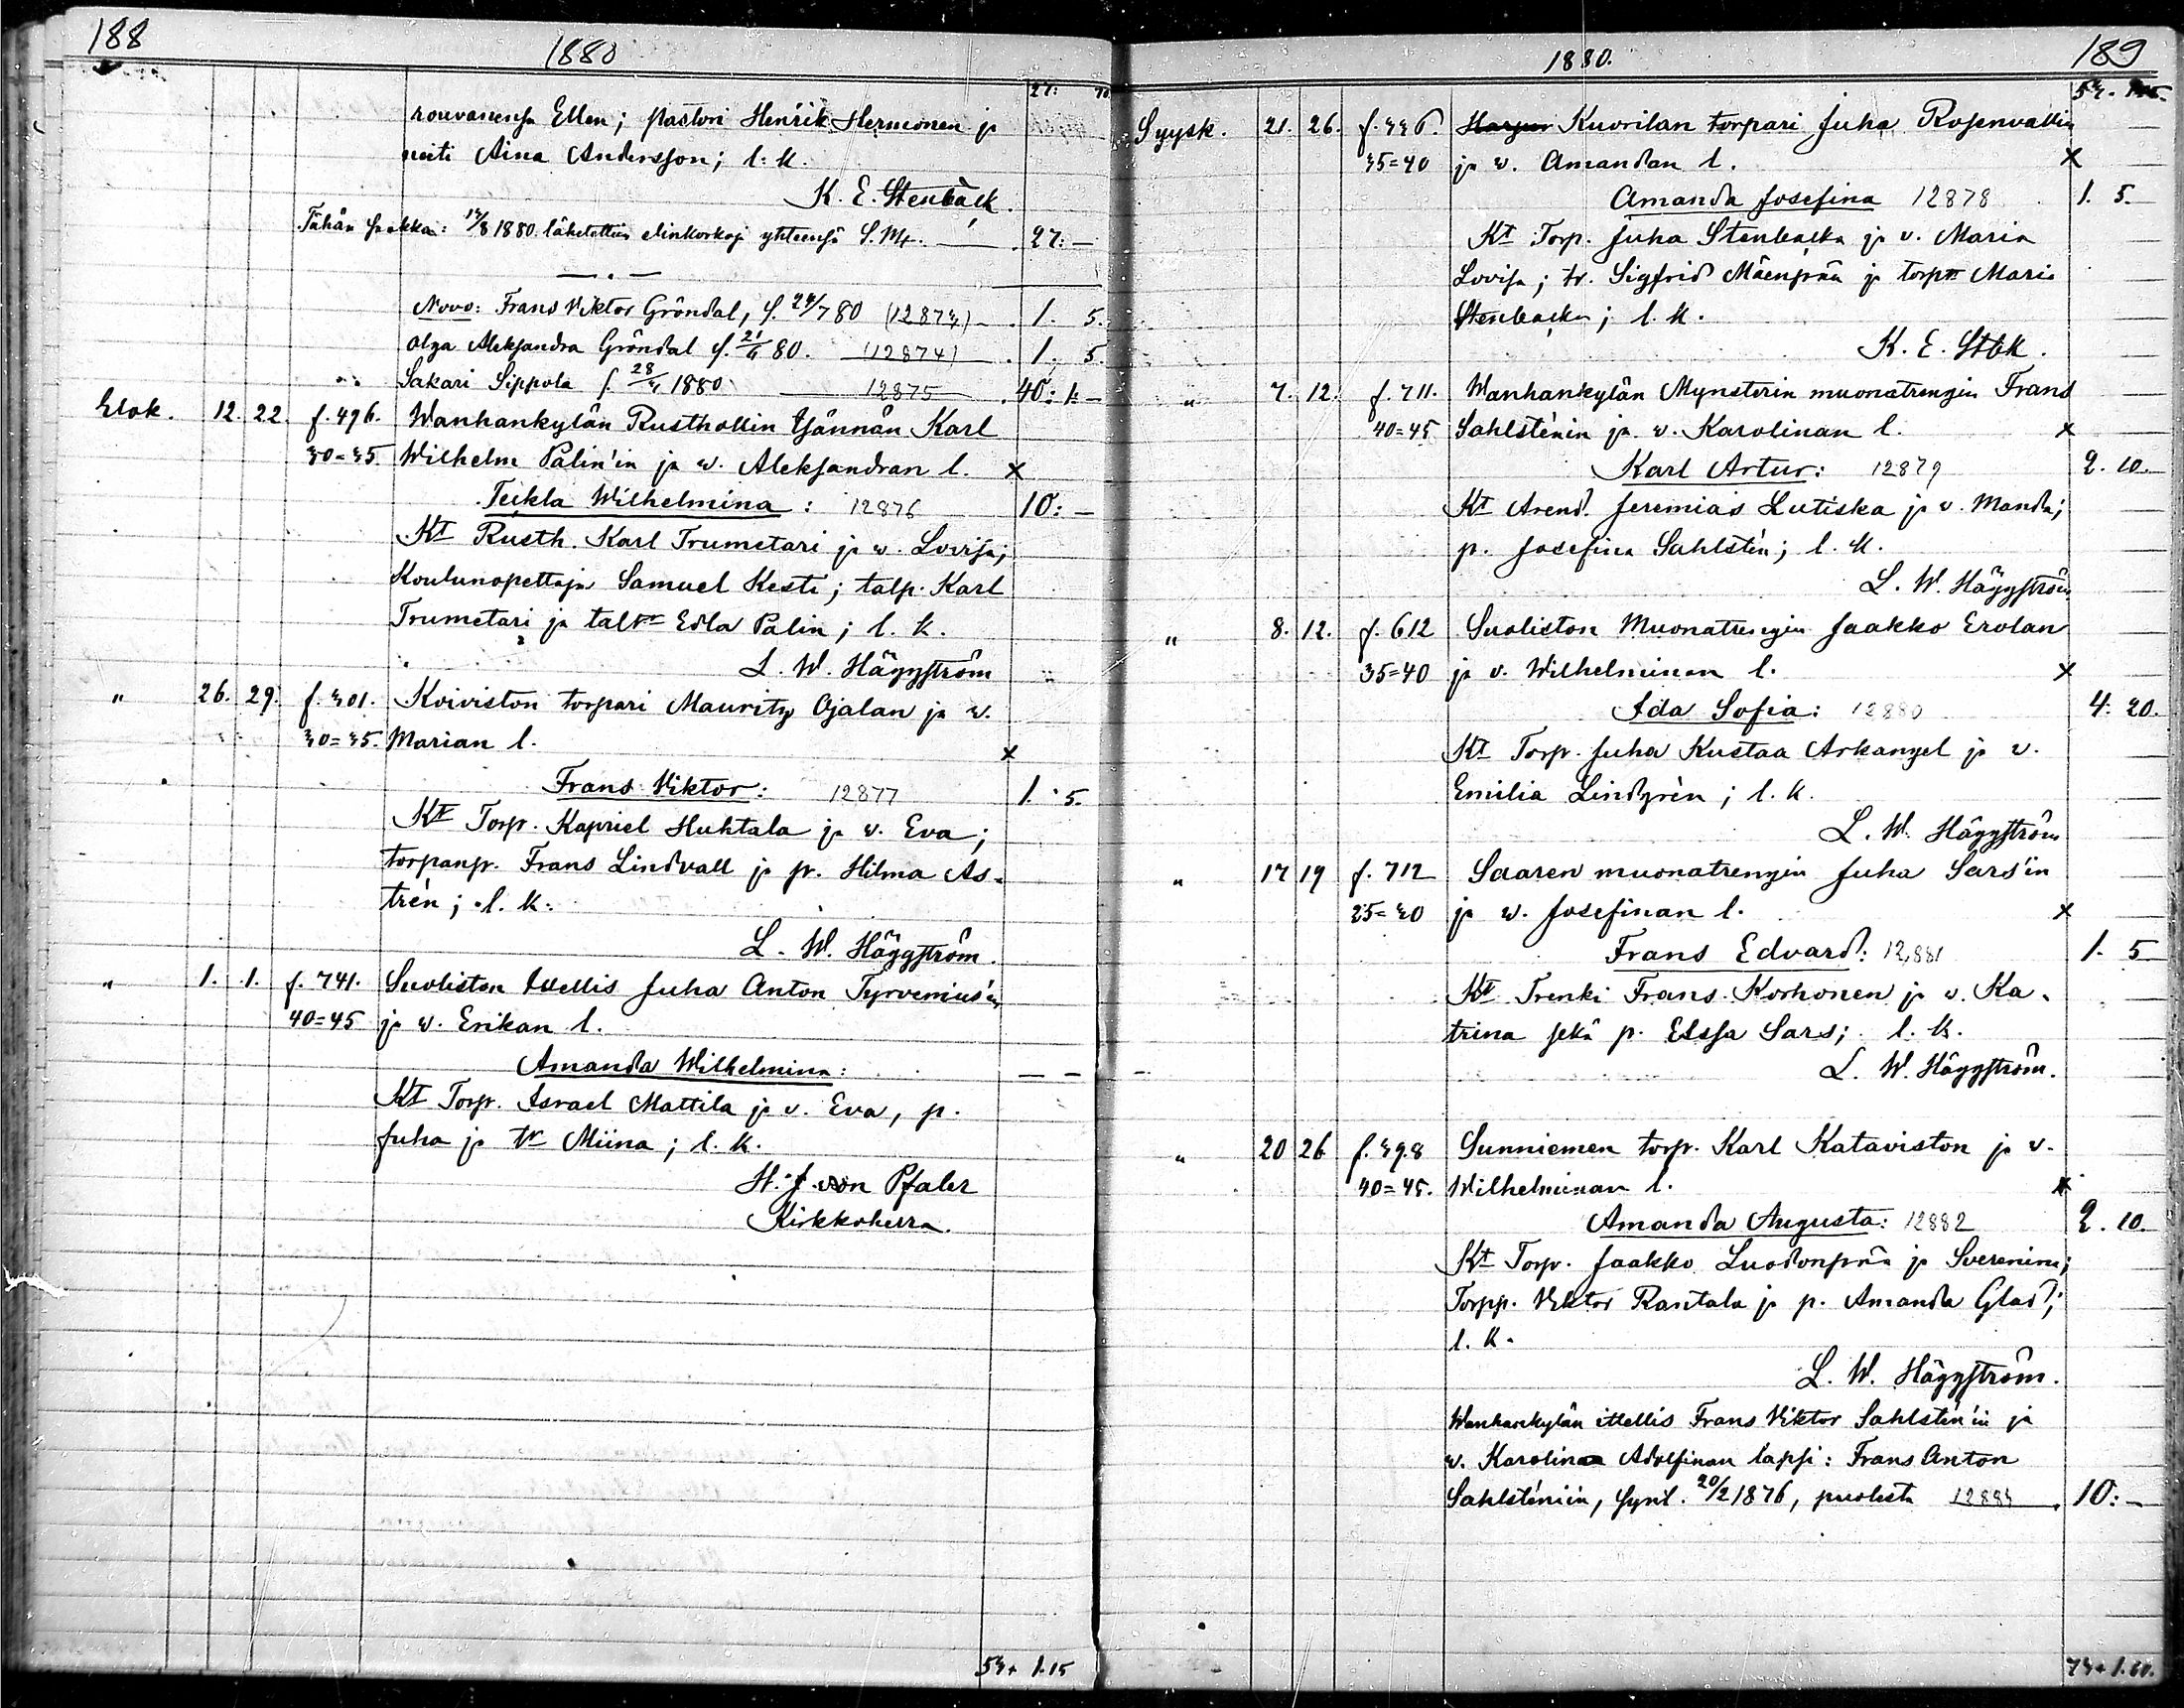 188
1880
27: 70
rouvanensa Ellen; pastori Henrik Hermonen ja
neiti Aina Andersson; l. k.
K. E. Stenbäck.
Tähän saakka: 14/8 1880 lähetettiin elinkorkoja yhteensä S.Mk. — 27: —
Novo: Frans Viktor Gröndal, s. 24/7 80 (12873) — 1. 5.
Olga Aleksandra Gröndal s. 21/6 80. (12874) 1. 5.
Sakari Sippola s. 28/3 1880 12875 40: —
Elok. 12. 22. f. 496. Wanhankylän Rusthollin Isännän Karl
30=35. Wilhelm Palin'in ja w. Aleksandran l. x
Teikla Wilhelmina: 12876 10: —
Kt Rusth. Karl Trumetari ja w. Lovisa;
Koulunopettaja Samuel Kesti; talp. Karl
Trumetari ja taltr Edla Palin; l. k.
L. W. Häggström
" 26. 29. f. 301. Koiviston torpari Mauritz Ojalan ja w.
30=35. Marian l. x
Frans Viktor: 12877 1. 5.
Kt Torp. Kapriel Huhtala ja w. Eva;
torpanp. Frans Lindvall ja p. Hilma As-
trén; l. k.
L. W. Häggström.
" 1. 1. f. 741. Suoliston Itellis Juha Anton Tyrvenius'en
40=45 ja w. Erikan l.
Amanda Wilhelmina: — —
Kt Torp. Israel Mattila ja v. Eva, p.
Juha ja tr Miina; l. k.
H. J. von Pfaler
Kirkkoherra.
53+ 1.15
1880.
189
53.
Syysk. 21. 26. f. 336. Harjun Kuorilan torpari Juha Rosenvallin
35=40 ja w. Amandan l. x
Amanda Josefina 12878 1. 5.
Kt Torp. Juha Stenbacka ja v. Maria
Lovisa; tr. Sigfrid Mäenpää ja torptr Maria
Stenbacka; l. k.
K. E. Stbk.
" 7. 12. f. 711. Wanhankylän Mynsterin muonatrengin Frans
40=45 Sahlsténin ja w. Karolinan l. x
Karl Artur: 12879 2. 10.
Kt Arend. Jeremias Lutiska ja v. Manda;
p. Josefina Sahlstén; l. k.
L. W. Häggström
" 8. 12. f. 612 Suoliston Muonatrengin Jaakko Erolan
35=40 ja v. Wilhelminan l. x
Ida Sofia: 12880 4. 20.
Kt Torp. Juha Kustaa Arkangel ja v.
Emilia Lindgrèn; l. k.
L. W. Häggström
" 17 19 f. 712 Saaren muonatrengin Juha Sars'in
25=30 ja w. Josefinan l. x
Frans Edvard: 12,881 1. 5
Kt Trenki Frans Korhonen ja v. Ka-
trina sekä p. Elssa Sars; l. k.
L. W. Häggström.
" 20 26 f. 398 Sunniemen torp. Karl Kataviston ja v.
40=45. Wilhelminan l. x
Amanda Augusta: 12882 2. 10
Kt Torp. Jaakko Luodonpää ja Sverenina;
Torpp. Viktor Rantala ja p. Amanda Glad;
l. k.
L. W. Häggström.
Wanhankylän itellis Frans Viktor Sahlstén'in ja
w. Karolina Adolfinan lapsi: Frans Anton
Sahlsténin, synt. 20/2 1876, puolesta 12883 10: —
73+ 1.60.